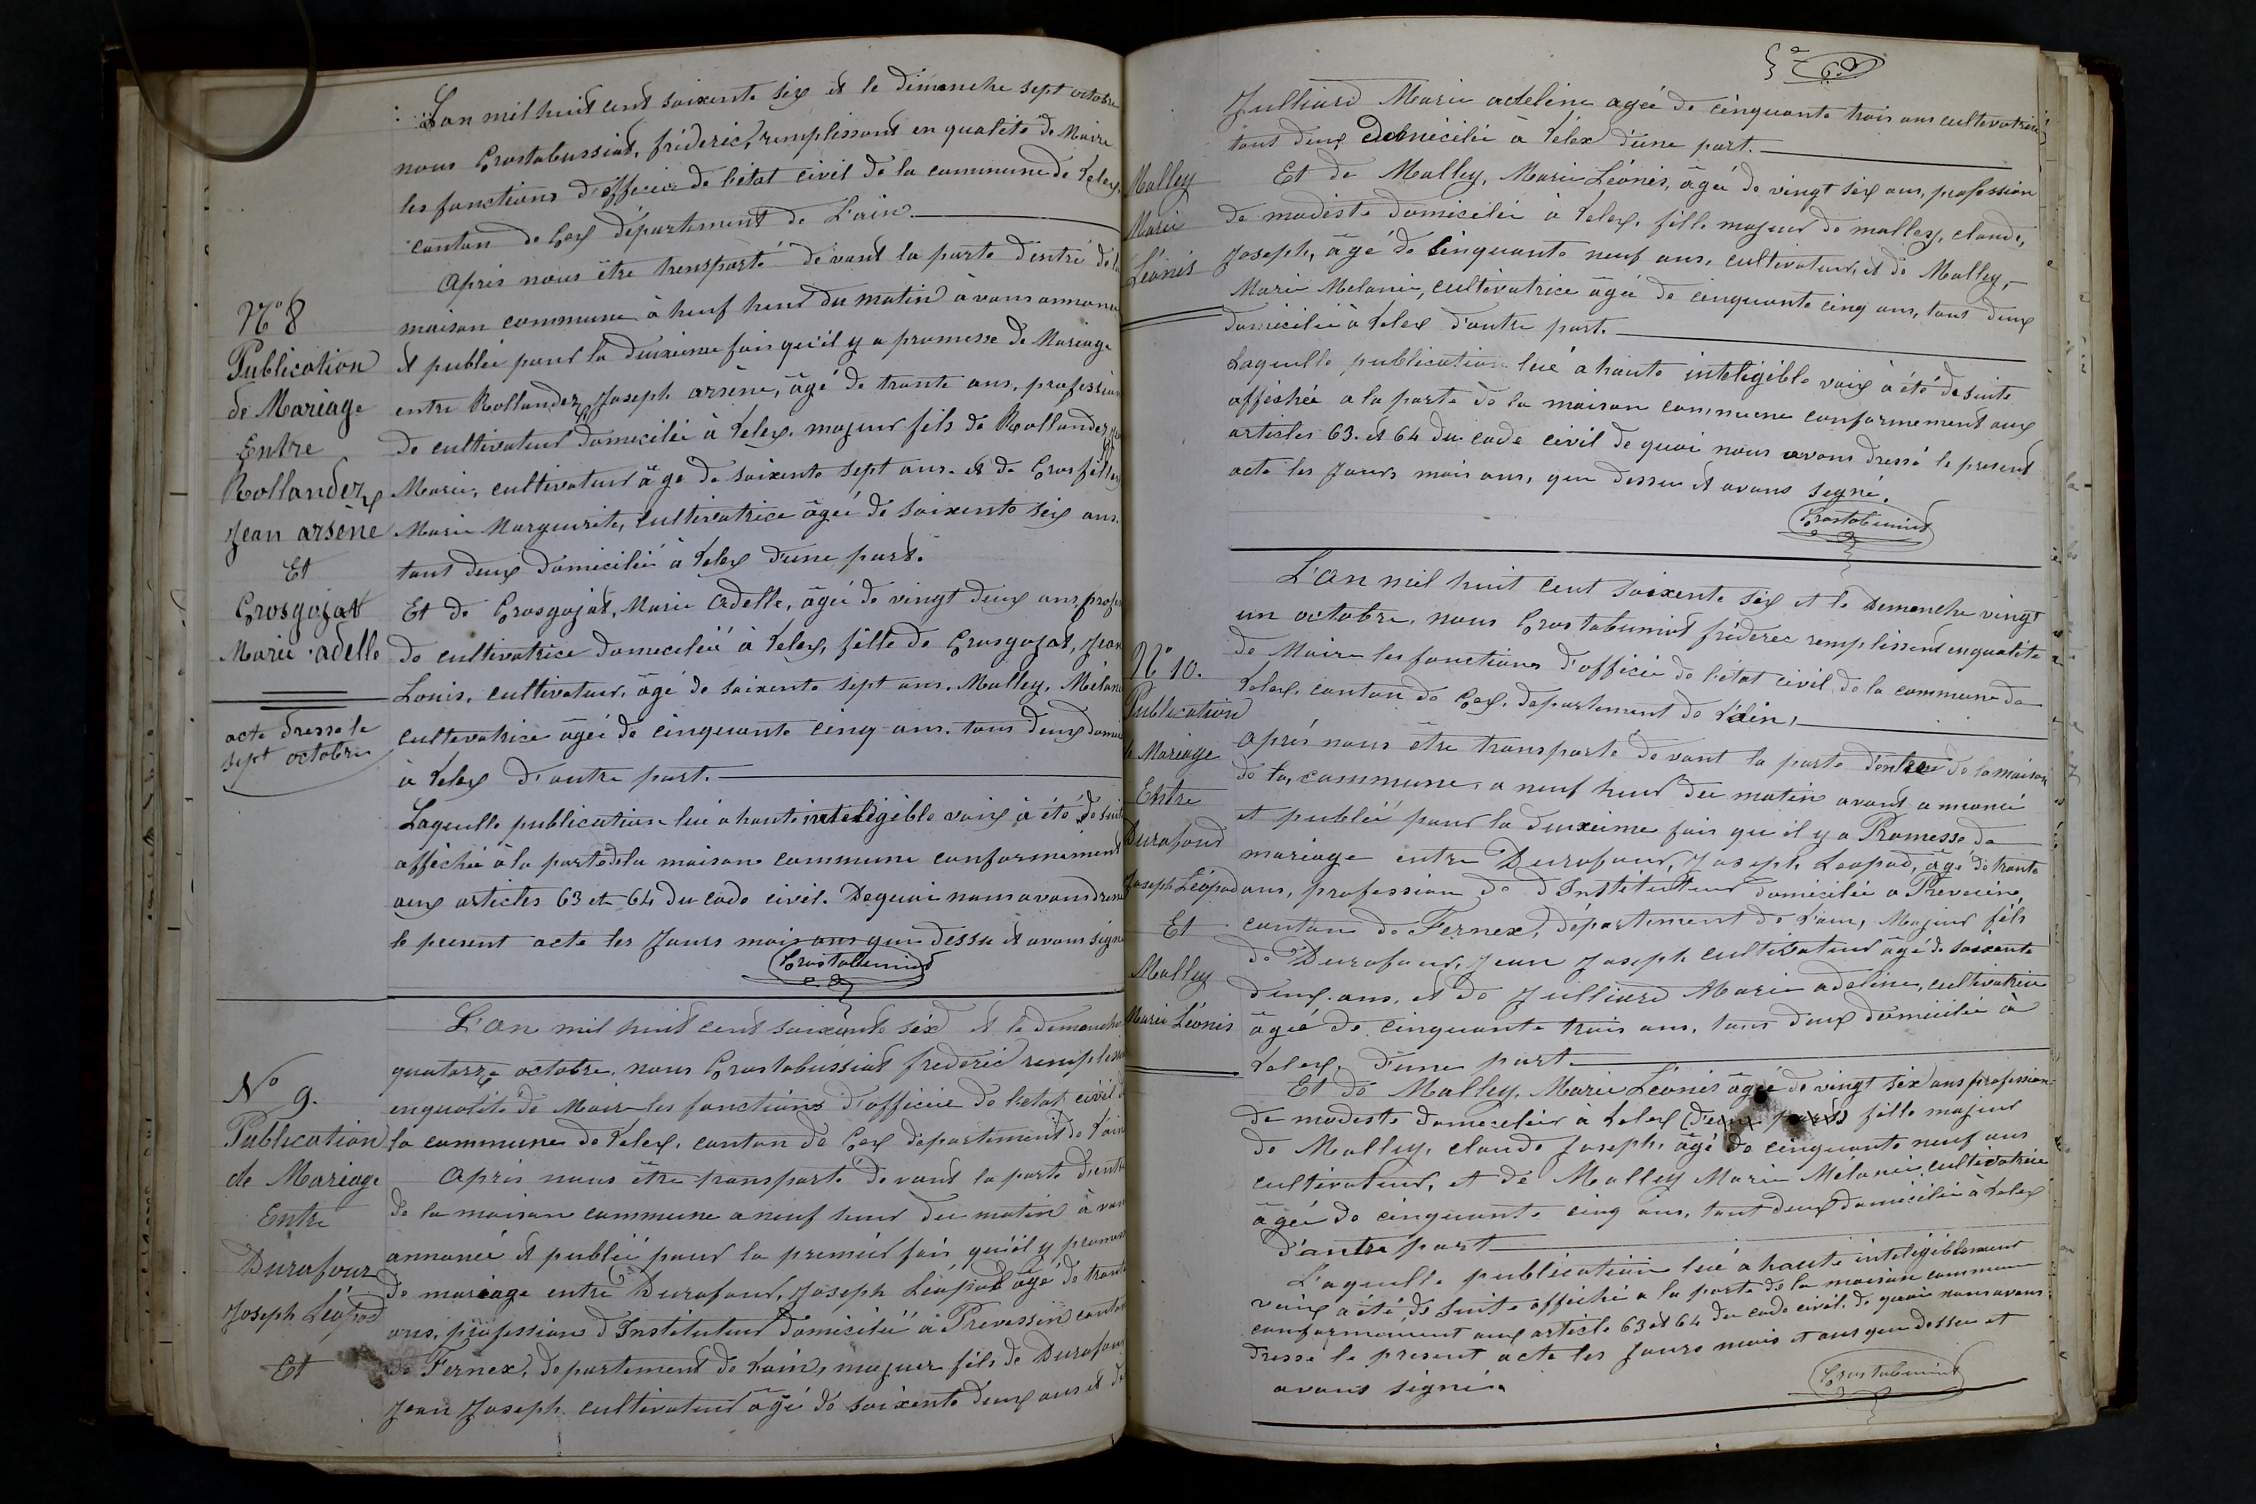 L'an mil huit cent soixente six et le dimanche sept octobre
nous Grostabussiat, fréderic, remplissant en qualité de Maire
les fonctions d'officier de l'état civil de la commune de Lelex
canton de Gex département de L'ain.
Apris nous être transporté devant la porte d'entré de la
maison commune à neuf heur du matin avons annoncé
et publié pour la deuxieme fois qu'il y a promesse de Mariage
entre Rollandez, Joseph arsène, âgé de trante ans, profession
de cultivateur domicilié à Lelex. majeur fils de Rollandez
Marie, cultivateur âge de soixente sept ans. et de Grosfilley
Marie Marguerite, cultivatrice âgée de soixente six ans.
tout deux domicilié à Lelex d'une part.
Et de Grosgojat, Marie Adelle, âgée de vingt deux ans, profes
de cultivatrice domecilié à Lelex, fille de Grosgojat, Jean
Louis, cultivateur, âgé de soixente sept ans. Malley, Mélanie
cultivatrice âgée de cinquante cinq ans. tous deux domici
à Lelex d'autre part.
Laquelle publication lué a haute inteligible voix à été de suite
affiché à la porte dela maison commune conformément
aux articles 63 et 64 du code civil. De quoi nous avons dressé
le present acte les Jours mois ans que dessu et avons signé
Grostabussiat
N° 8
Publication
de Mariage
Entre
Rollandez
Jean arsène
Et
Grosgojat
Marie adelle
acte dresse le
sept octobre
L'An mil huit cent soixente six et le dimanche
quatorze octobre. nous Grostabussiat frederic remplissant
enqualité de Maire les fonctions d'officier de l'etat civil de
la commune de Lelex, canton de Gex département de L'ain
Apris nous être transporté devant la porte d'entré
de la maison commune a neuf heur du matin avons
annoncé et publié pour la premier fois qu'il y promesse
de mariage entre Durafour, Joseph Léopod âgé de trante
ans, profession d'Instituteur domicilié a Prevessin canton
de Fernex, departement de Lain, majeur fils de Durafour
Jean Joseph cultivateur âgé de soixente deux ans et de
N° 9.
Publication
de Mariage
Entre
Durafour
Joseph Léopod
Et
Julliard Marie adeline agée de cinquante trois ans cultivatrice
tout deux domicilié à Lélex d'une part.
Et de Malley, Marie Léonis, âgée de vingt six ans, profession
de modiste domicilié à Lelex, fille majeur de malley, claude,
Joseph, âgé de cinquante neuf ans, cultivateur, et de Malley,
Marie Melanie, cultivatrice âgée de cinquante cinq ans, tous deux
domicilié à Lelex d'autre part.
Laquelle publication lué a haute inteligible voix à été de suite
affichée a la porte de la maison commune conformement aux
articles 63. et 64 du code civil de quoi nous avons dressé le present
acte les Jours mois ans, que dessu et avons signé.
Grostabussiat
Malley
Marie
Léonis
L'An mil huit cent soixente six et le Dimanche vingt
un octobre, nous Grostabussiat fréderic remplissent enqualité
de Maire les fonctions d'officié de l'état civil de la commune de
Lelex, canton de Gex, departement de L'ain,
Aprés nous être transporté devant la porte d'entrée de la maison
de la, commune, a neuf heur du matin avons a nnoncé
et publié pour la deuxieme fois qu'il y a Promesse de
mariage entre Durafour, Joseph Leopod, âgé de trante
ans, profession de d'Instituteur domicilié a Prevecin,
canton de Fernex, département de Lain, Majeur fils
de Durafour, Jean Joseph cultivateur âgé de soixente
deux ans, et de Julliard Marie adeline, cultivatrice
âgée de cinquante trois ans, tous deux domicilié à
Lelex, d'une part
Et de Malley, Marie Léonis âgée de vingt six ans profession
de modiste domecilier à Lelex fille majeur
de Malley, claude Joseph, âgé de cinquante neuf ans
cultivateur, et de Malley Marie Mélanie, cultivatrice
âgée de cinquante cinq ans, tout deux domicilié à Lelex
d'autre part
Laquelle publication lué a haute inteligiblement
voix a été de suite affiché a la porte de la maison commune
conformement aux article 63 et 64 du code civil. de quoi nous avons
dressé le present acte les Jours mois et ans que dessu et
avons signé.
Grostabussiat
N° 10.
Publication
de Mariage
Entre
Durafour
Joseph Léopod
Et
Malley
Marie Léonis